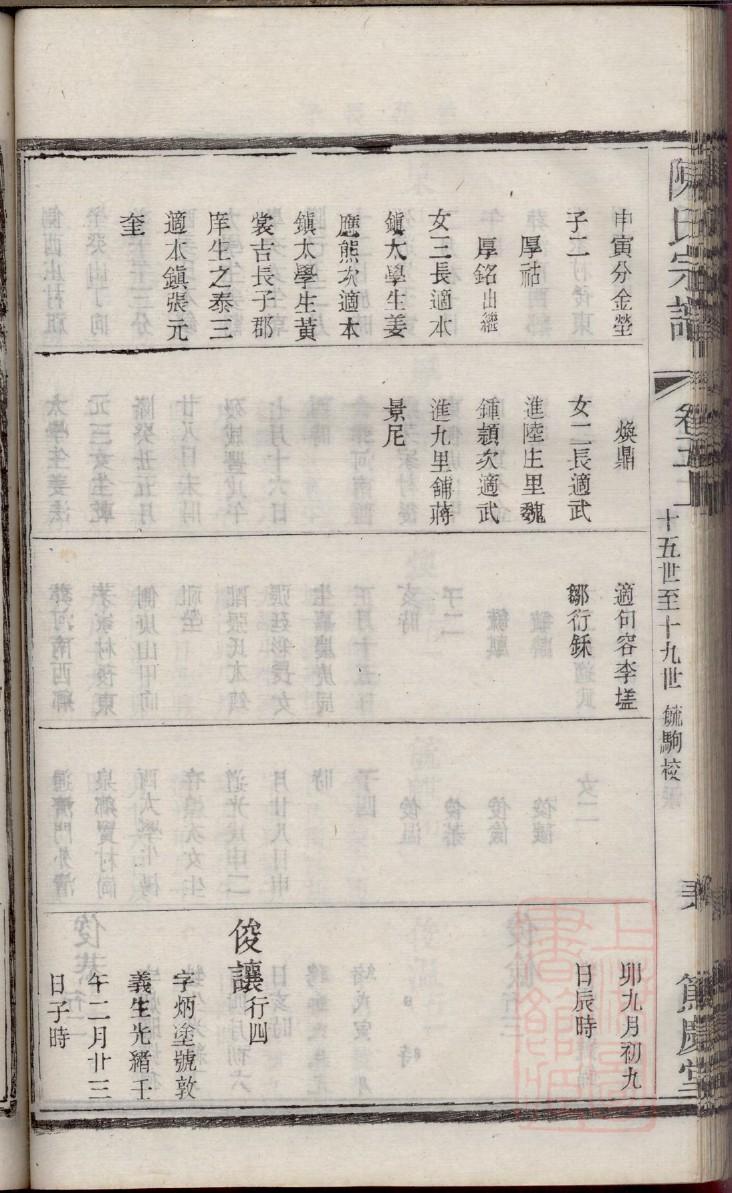 陳氏宗譜
卷五二
十五世至十九世
毓駒校
篤慶堂
申寅分金塋
子二
厚祜
厚銘出繼
女三長適本
鎮大學生姜
應熊次適本
鎮太學生黃
裳吉長子郡
庠生之泰三
適本鎮張元
奎
煥鼎
女二長適武
進陸庄里魏
鍾穎次適武
進九里舖蔣
景尼
適句容李墭
鄒衍銾
卯九月初九
日辰時
俊讓行四
字炳塗號敦
義生光緒壬
午二月廿三
日子時